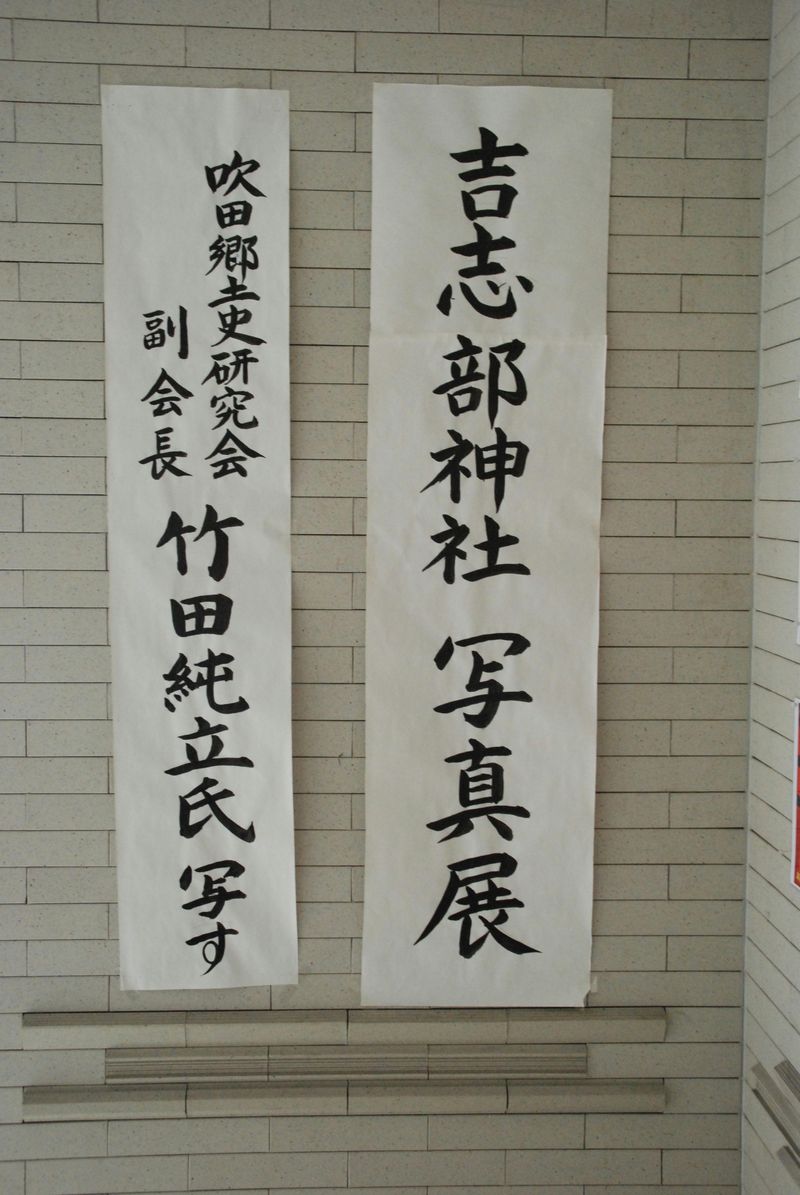 吉志部神社 写真展
吹田郷土史研究会
副会長
竹田純立氏 写す